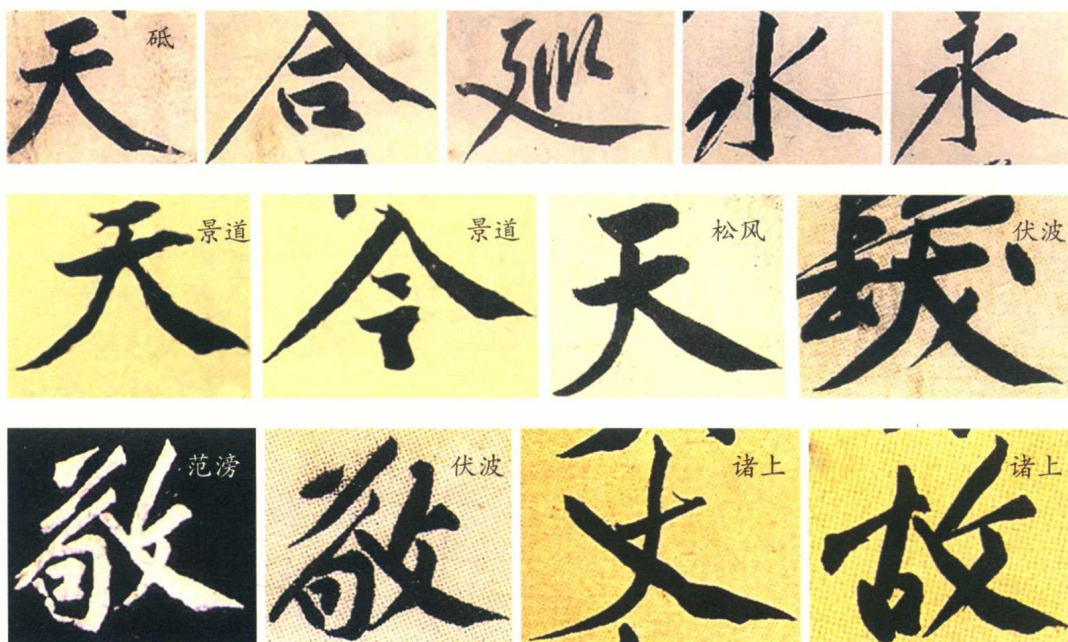 天 砥 合 廵 水 永
天 景道 今 景道 天 松风 髮 伏波
敬 范滂 敬 伏波 丈 诸上 故 诸上